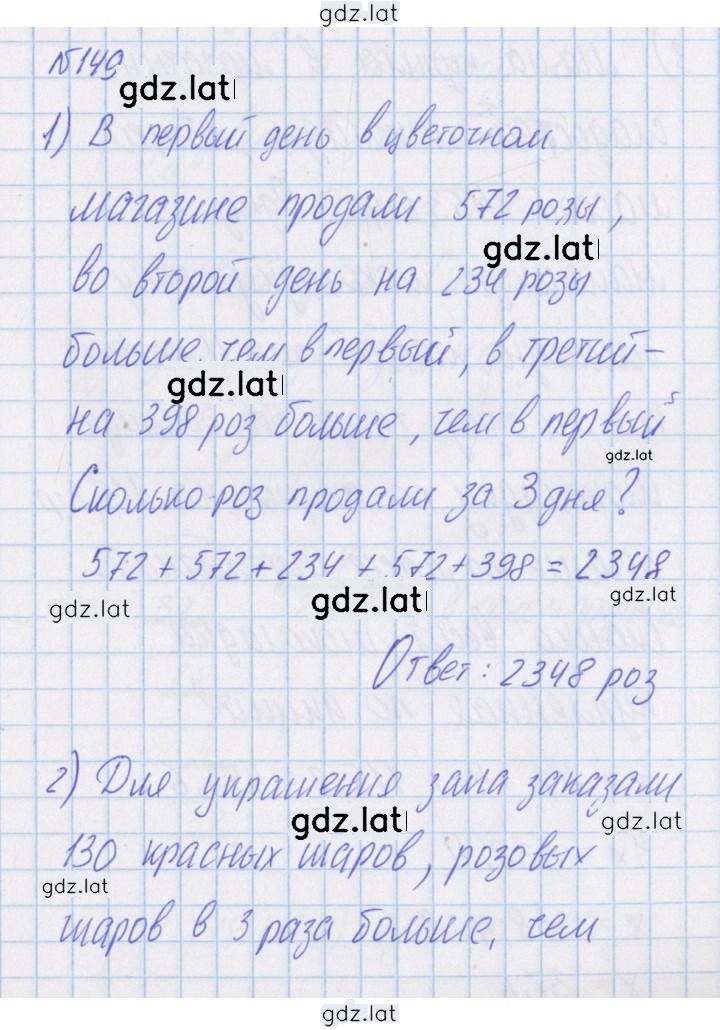 gdz.lat
№149
gdz.lat
1) В первый день в цветочном
магазине продали 572 розы,
gdz.lat
во второй день на 234 розы
больше, чем в первый, в третий -
gdz.lat
на 398 роз больше, чем в первый
gdz.lat
Сколько роз продали за 3 дня?
572 + 572 + 234 + 572 + 398 = 2348
gdz.lat gdz.lat gdz.lat
Ответ: 2348 роз
2) Для украшения зала заказали
gdz.lat gdz.lat
130 красных шаров, розовых
gdz.lat
шаров в 3 раза больше, чем
gdz.lat